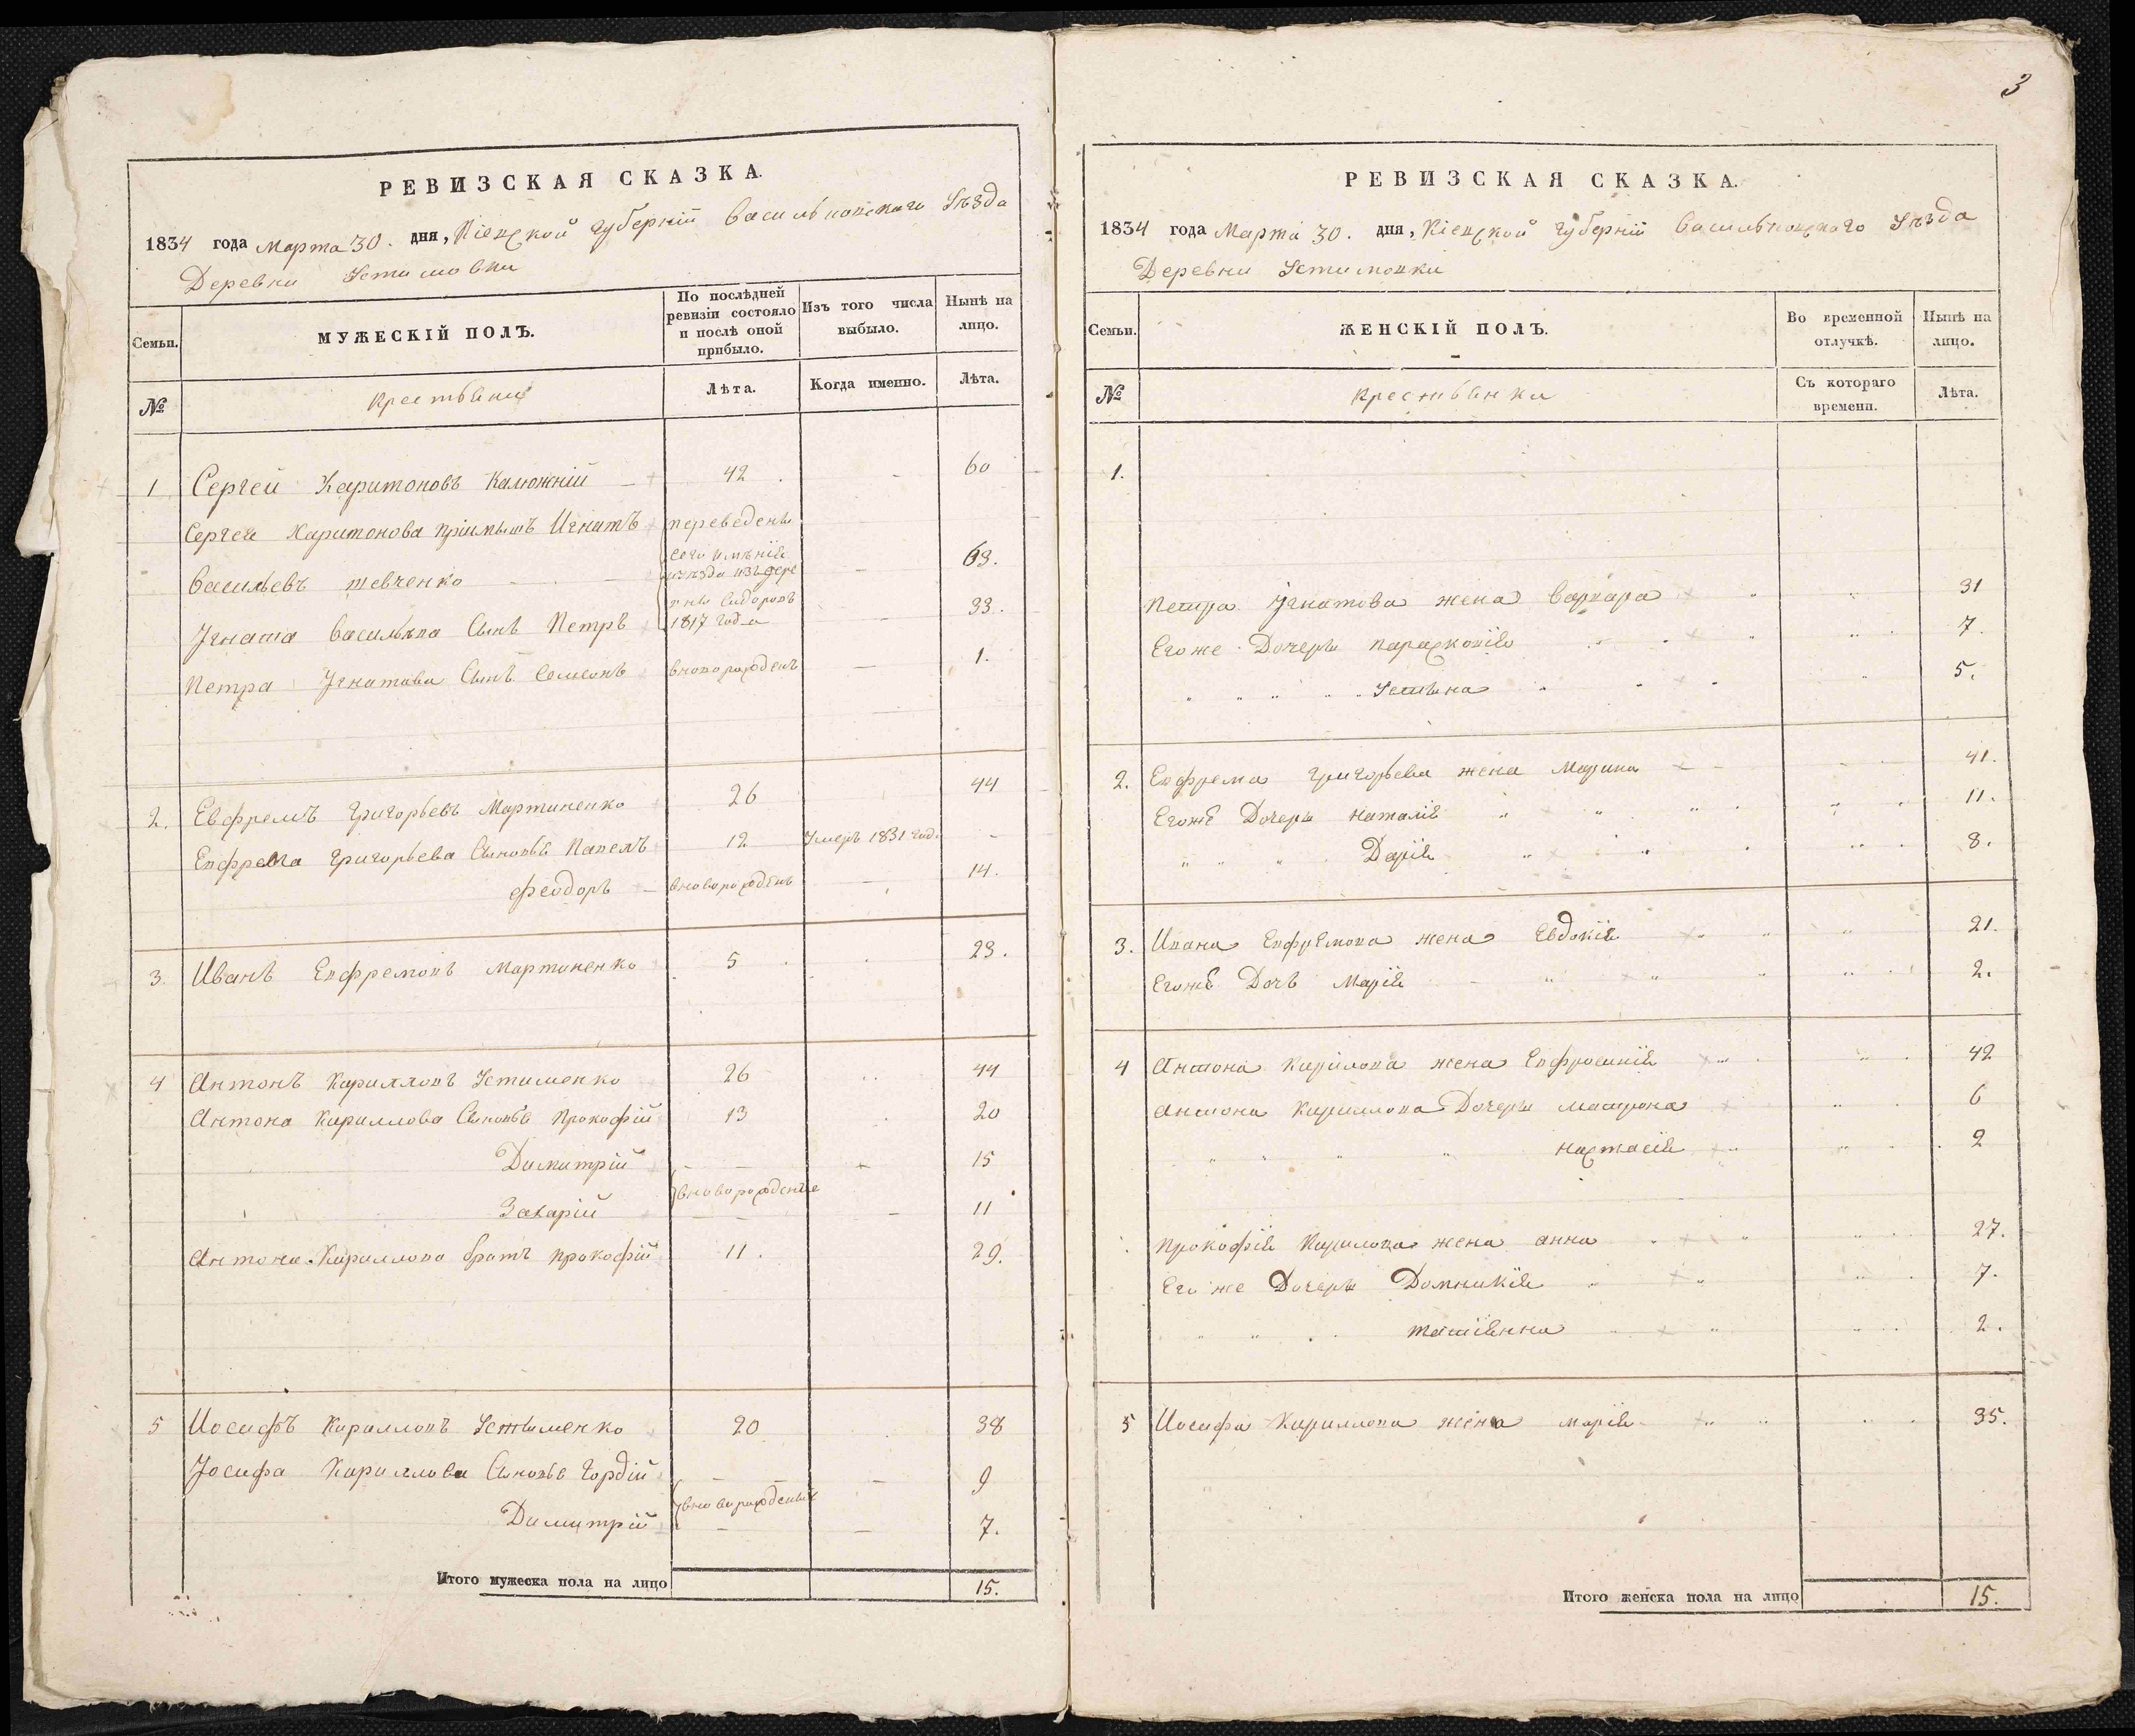 3
РЕВИЗСКАЯ СКАЗКА.
1834 года Марта 30. дня, Кіевской губерніи Васильковскаго Уѣзда
Деревни Устимовки
Семьи.
МУЖЕСКІЙ ПОЛЪ.
По послѣдней ревизіи состояло и послѣ оной прибыло.
Изъ того числа выбыло.
Нынѣ на лицо.
№
Крестьяне
Лѣта.
Когда именно.
Лѣта.
1 Сергей Харитоновъ Калюжній 42 60
Сергея Харитонова пріимышъ Игнатъ переведенъ
Васильевъ Шевченко сего имѣнія 63.
уѣзда изъ дере
вни Сидоровъ
Игната Васильева Сынъ Петръ 1817 года 33.
Петра Игнатова Сынъ Семенъ вноворожденъ 1.
2. Евфремъ Григорьевъ Мартиненко 26 44
Евфрема Григорьева Сыновья Павелъ 12 Умеръ 1831 года
Феодоръ вноворожденъ 14.
3. Иванъ Евфремовъ Мартиненко 5 23.
4 Антонъ Кирилловъ Устименко 26 44
Антона Кириллова Сыновья Прокофій 13 20
Димитрій 15
вноворожденые
Захарій 11
Антона Кириллова братъ Прокофій 11. 29.
5 Иосифъ Кирилловъ Устименко 20 38
Іосифа Кириллова Сыновья Гордій 9
вноворожденые
Димитрій 7.
Итого мужеска пола на лицо 15.
РЕВИЗСКАЯ СКАЗКА.
1834 года Марта 30. дня, Кіевской губерніи Васильковскаго Уѣзда
Деревни Устимовки
Семьи.
ЖЕНСКІЙ ПОЛЪ.
Во временной отлучкѣ.
Нынѣ на лицо.
№
Крестьянки
Съ котораго времени.
Лѣта.
1.
Петра Игнатова жена Варвара 31
Егоже Дочеры Парасковія 7.
Устына 5.
2. Евфрема Григорьева жена Марина 41.
Егоже Дочеры Наталія 11.
Дарія 8.
3. Ивана Евфремова жена Евдокія 21.
Егоже Дочь Марія 2.
4 Антона Кирилова жена Евфросинія 42
Антона Кириллова Дочеры Матрона 6
Настасія 2
Прокофія Кирилова жена Анна 27.
Его же Дочеры Домникія 7.
Татіянна 2.
5 Иосифа Кириллова жена Марія 35.
Итого женска пола на лицо 15.